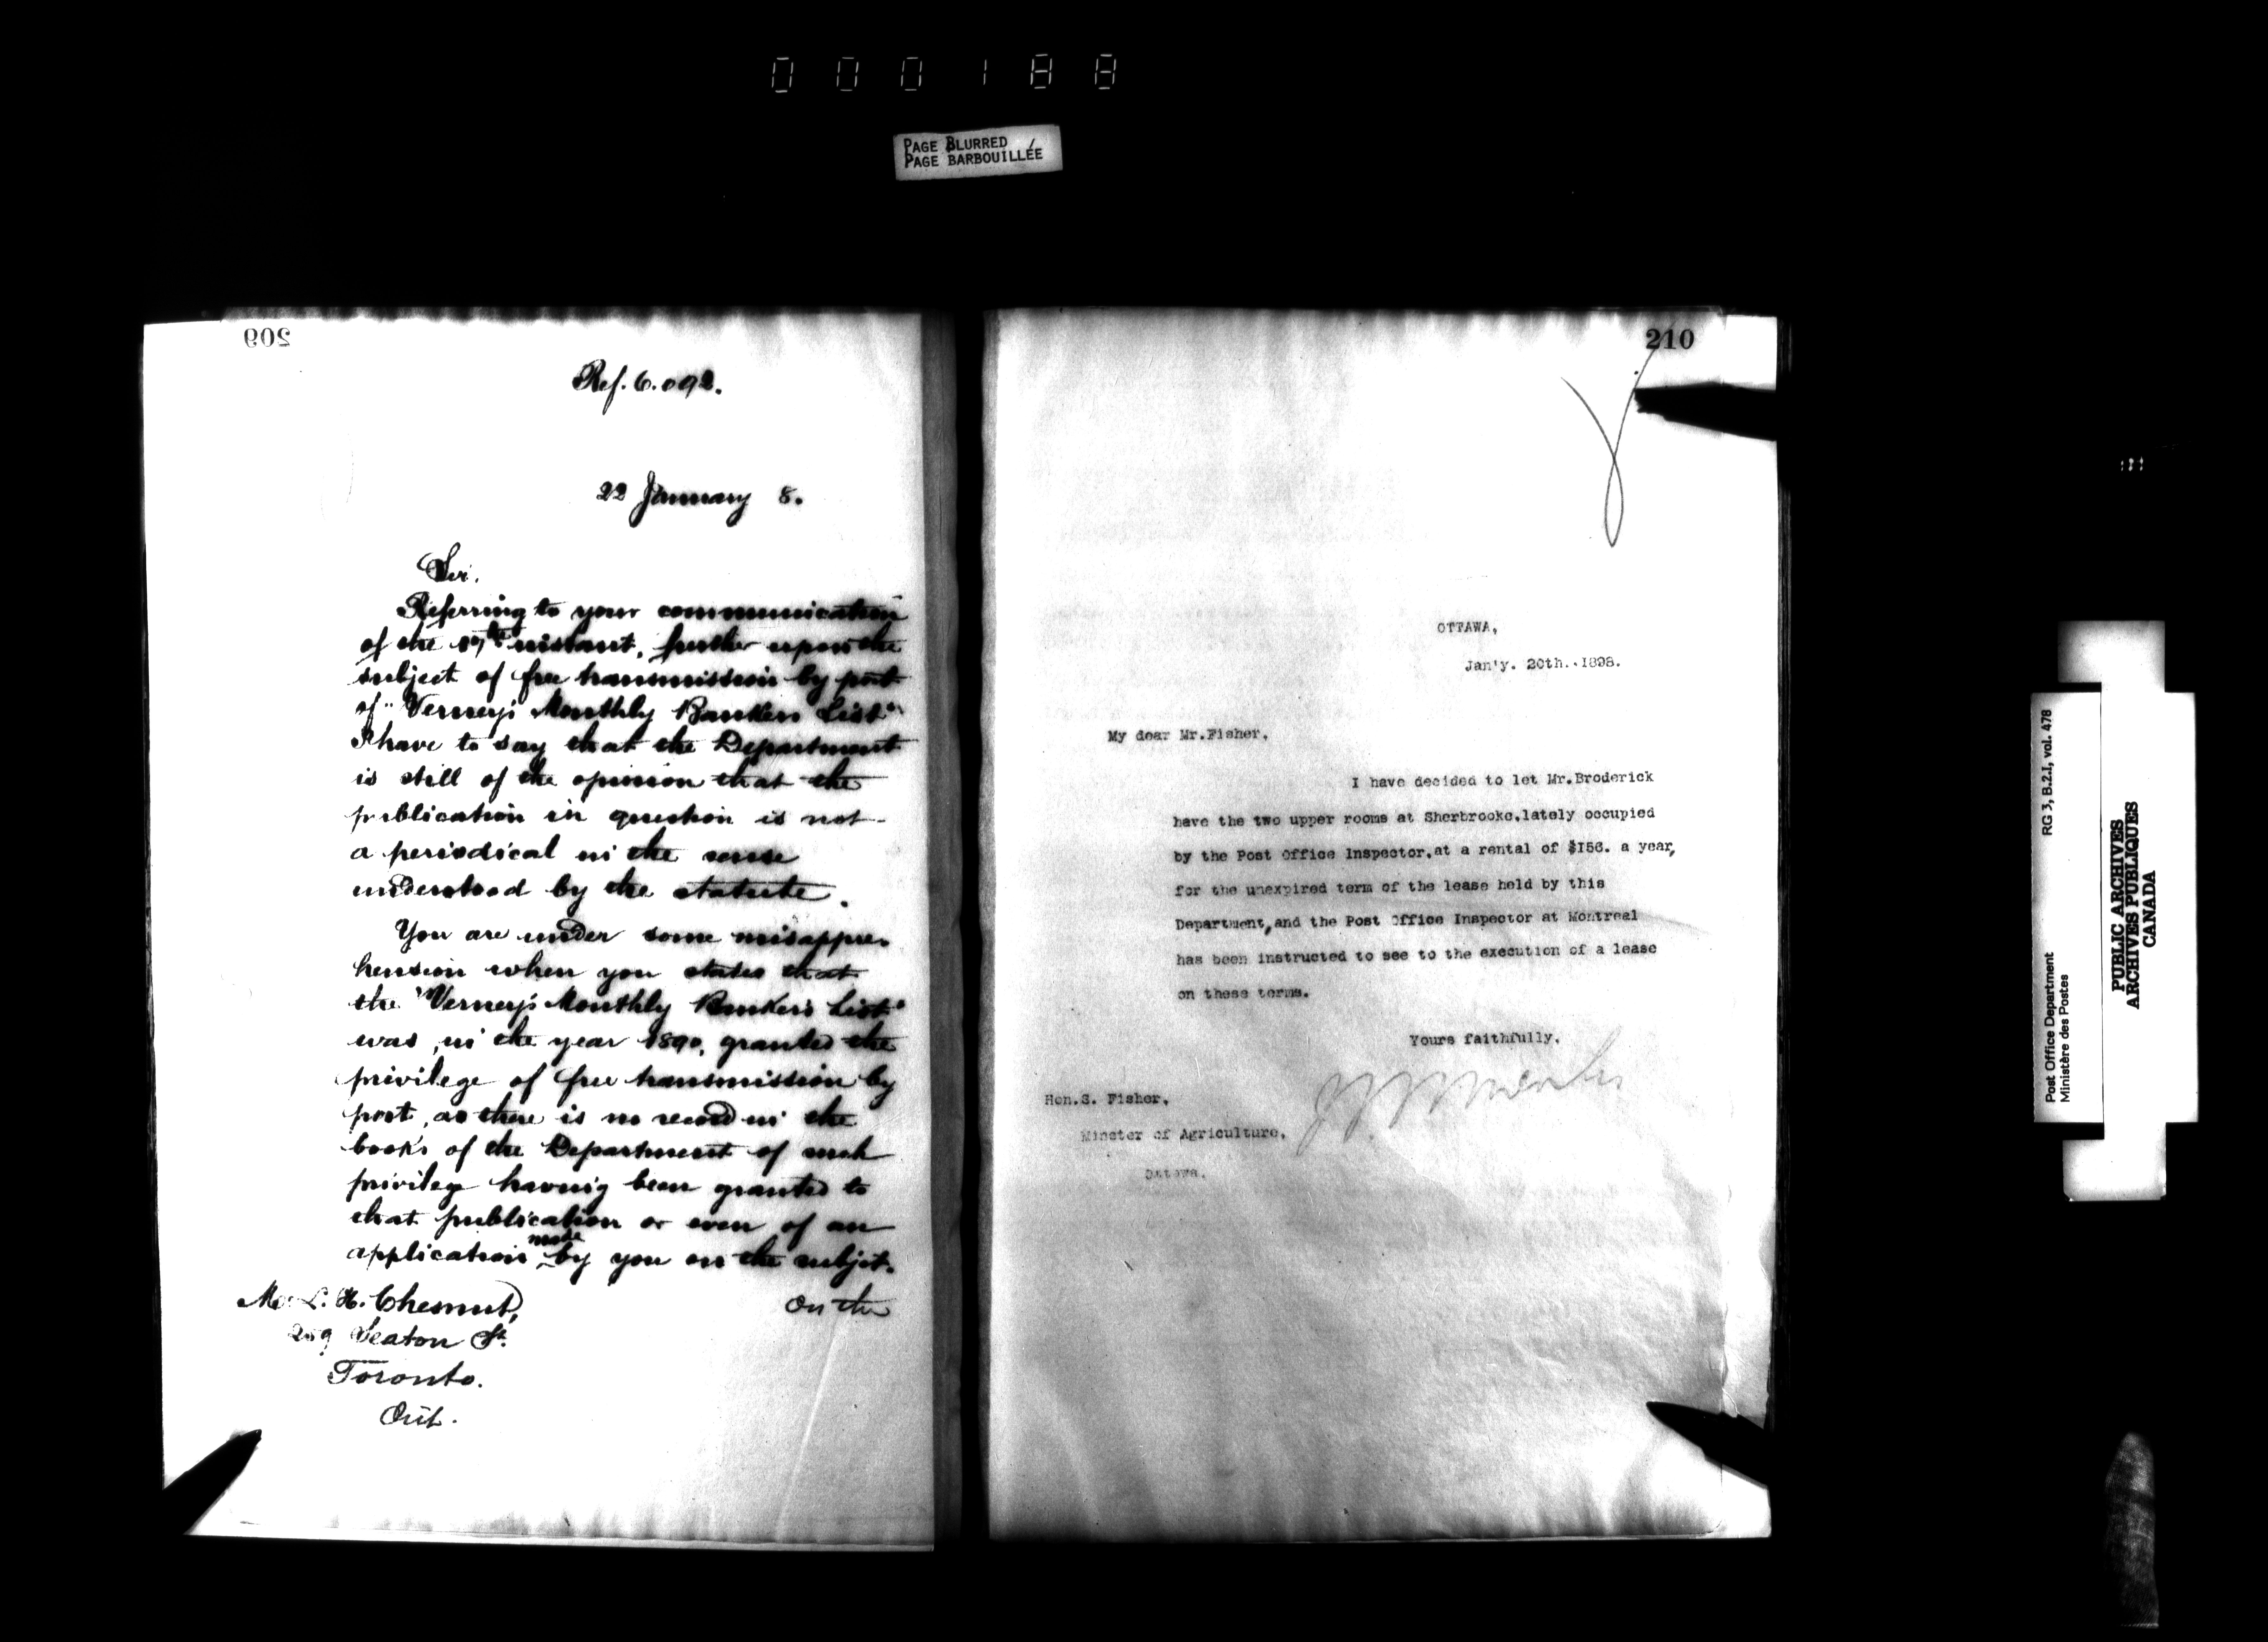 000188
PAGE BLURRED
PAGE BARBOUILLÉE
209
Ref. 6.092.
22 January 8.
Sir,
Referring to your communication
of the instant, further upon the
subject of free transmission by post
of "Verney's Monthly Bankers List"
I have to say that the Department
is still of the opinion that the
publication in question is not
a periodical in the sense
understood by the statute.
You are under some misappre-
hension when you states that
the "Verney's Monthly Bankers List"
was, in the year 1890, granted the
privilege of free transmission by
post, as there is no record in the
books of the Department of such
privilege having been granted to
that publication or even of an
application made by you on the subject.
On the
Mr. L. H. Chesnut,
259 Seaton St.
Toronto.
Ont.
210
OTTAWA,
Jan'y. 20th. 1898.
My dear Mr.Fisher,
I have decided to let Mr.Broderick
have the two upper rooms at Sherbrooke,lately occupied
by the Post Office Inspector,at a rental of $156. a year,
for the unexpired term of the lease held by this
Department,and the Post Office Inspector at Montreal
has been instructed to see to the execution of a lease
on these terms.
Yours faithfully,
Hon.S. Fisher,
Minster of Agriculture,
Ottawa.
Post Office Department
Ministère des Postes
RG 3, B.2.1, vol. 478
PUBLIC ARCHIVES
ARCHIVES PUBLIQUES
CANADA